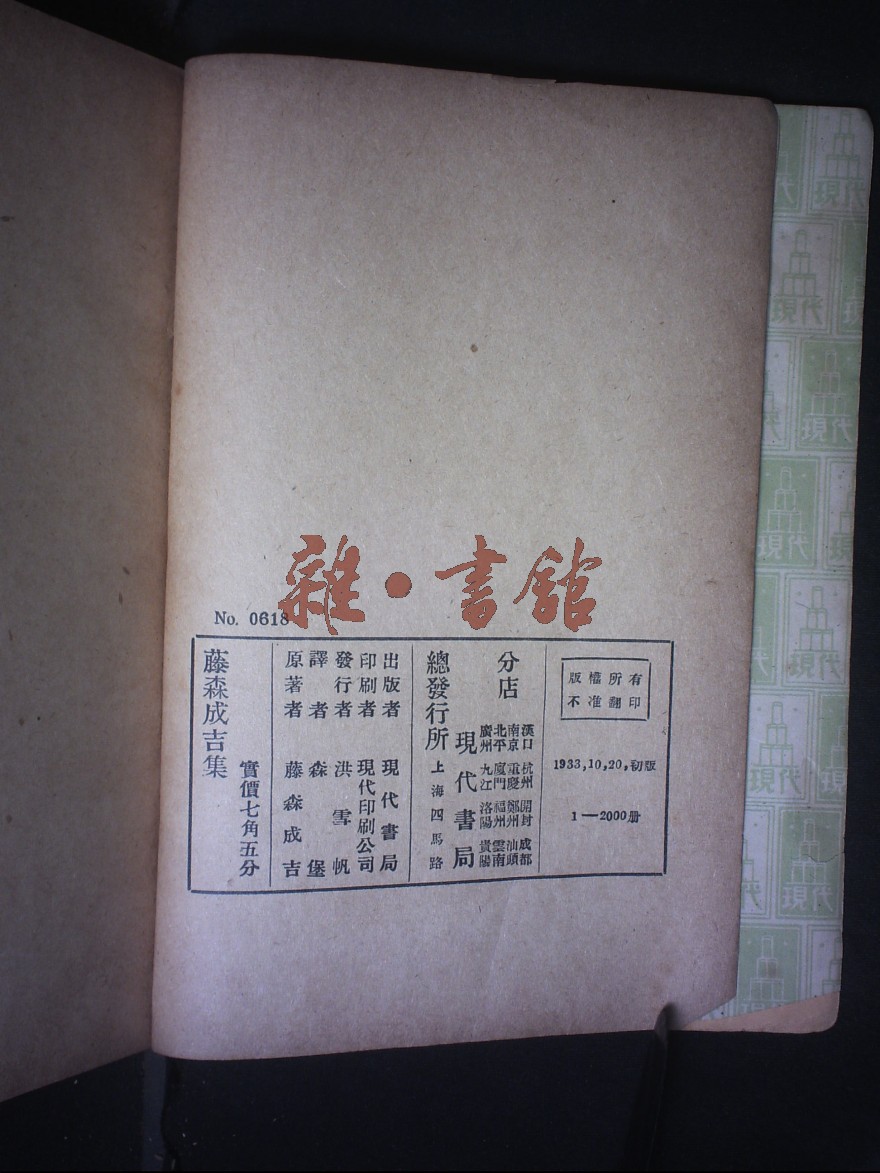 雜·書館
No. 0618
版權所有
不准翻印
1933,10,20,初版
1—2000册
分店
漢口 杭州 開封 成都
南京 重慶 鄭州 汕頭
北平 廈門 福州 雲南
廣州 九江 洛陽 貴陽
現代書局
總發行所 上海四馬路
出版者 現代書局
印刷者 現代印刷公司
發行者 洪雪帆
譯者 森堡
原著者 藤森成吉
實價七角五分
藤森成吉集